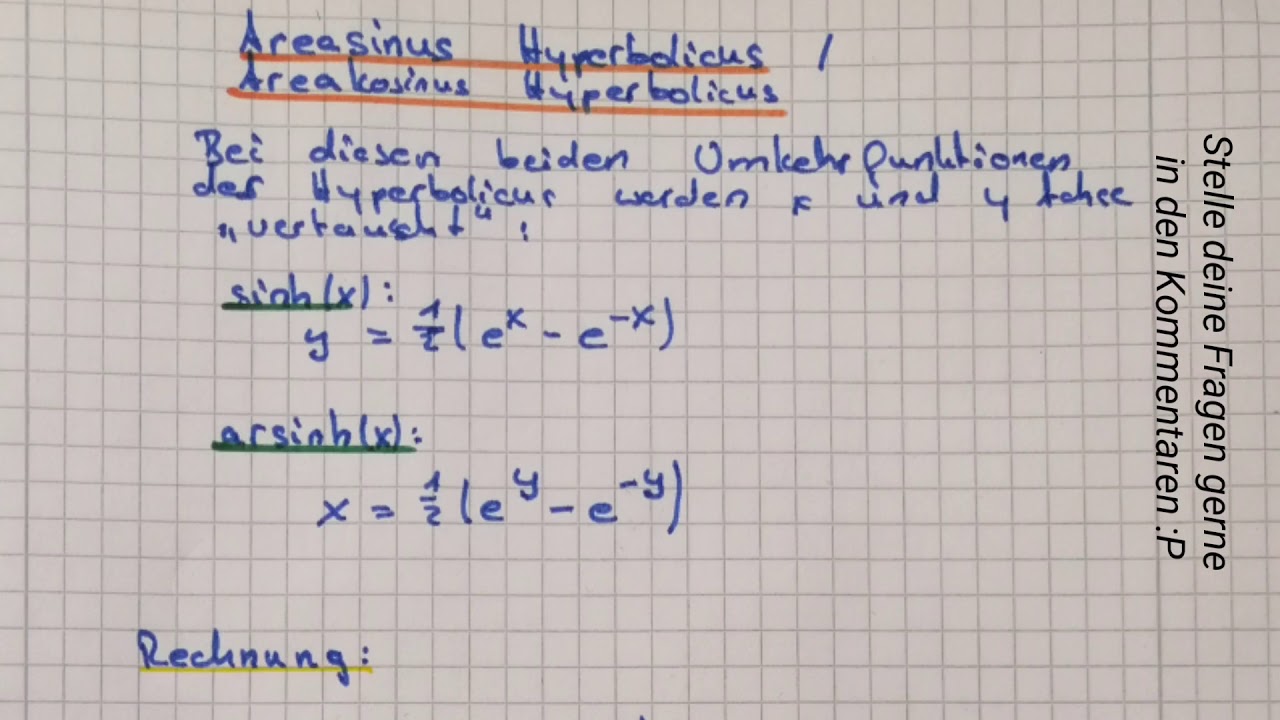 Areasinus Hyperbolicus /
Areakosinus Hyperbolicus
Bei diesen beiden Umkehrfunktionen
des Hyperbolicus werden x und y Achse
„vertauscht“:
sinh(x):
y = 1/2 (e^x - e^-x)
arsinh(x):
x = 1/2 (e^y - e^-y)
Rechnung:
Stelle deine Fragen gerne
in den Kommentaren :P